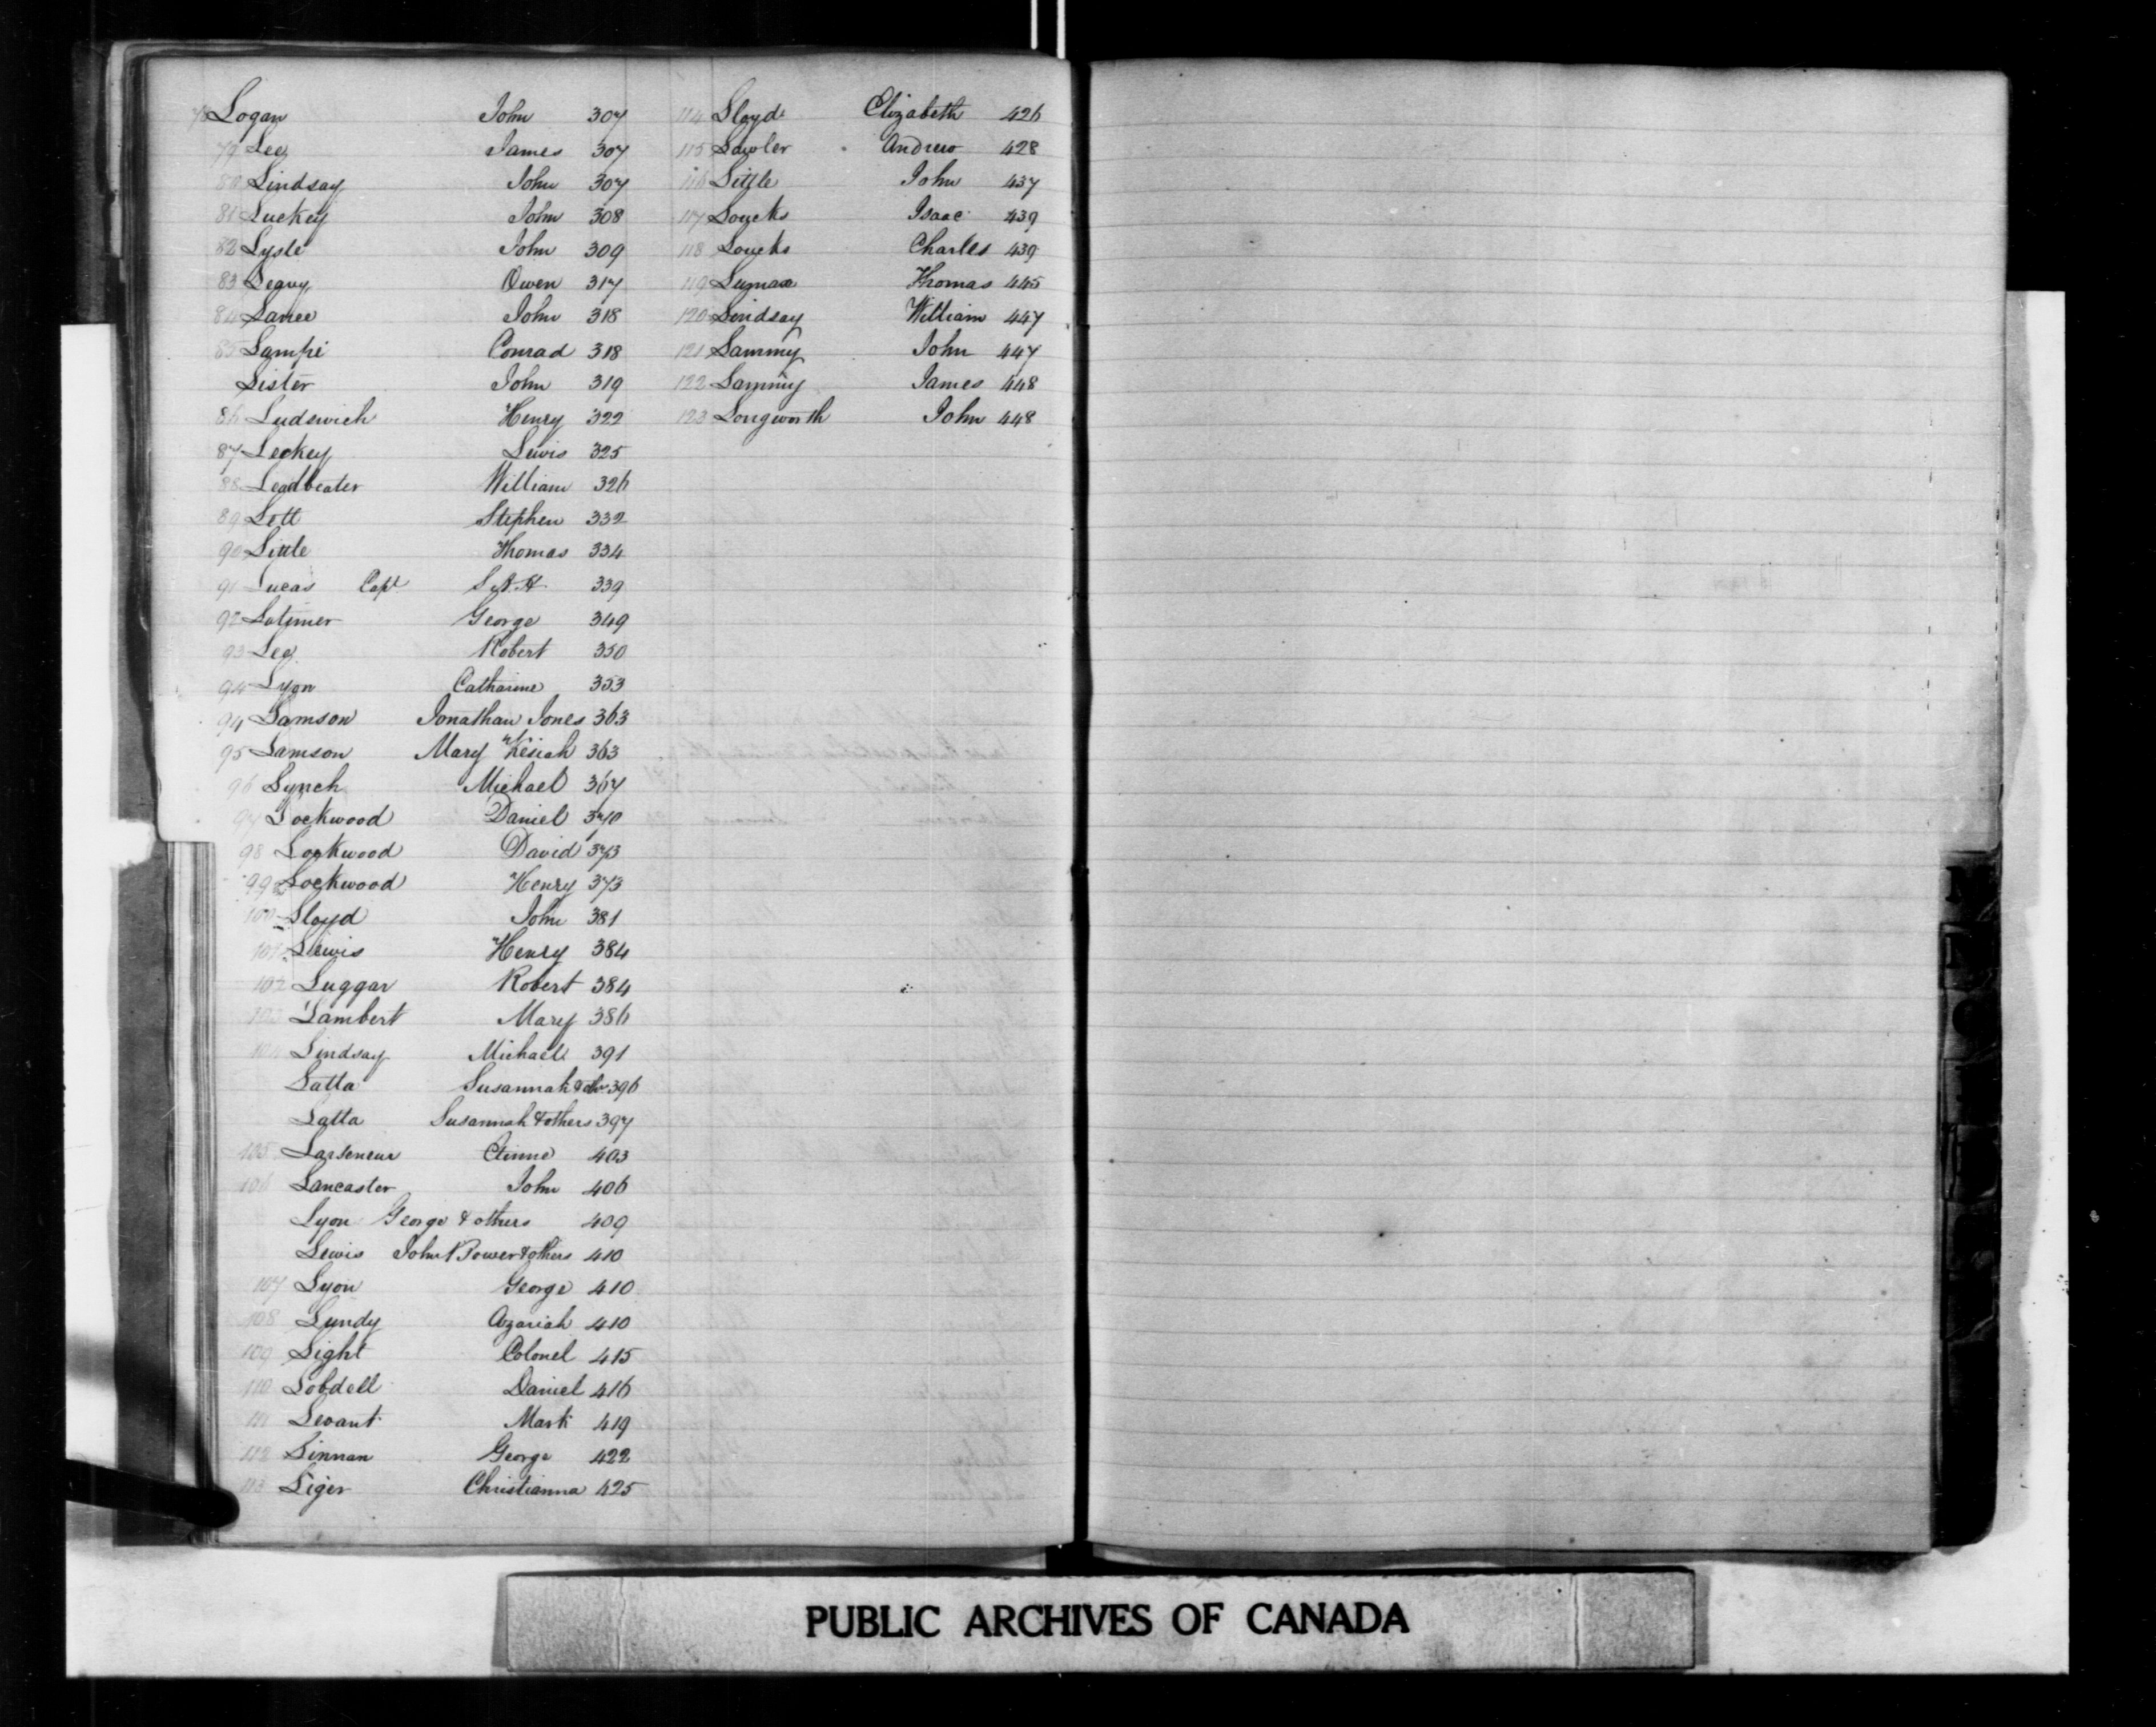 78 Logan John 307
79 Lee James 307
80 Lindsay John 307
81 Luckey John 308
82 Lysle John 309
83 Leavy Owen 317
84 Lance John 318
85 Lampi Conrad 318
Lister John 319
86 Ludswich Henry 322
87 Leckey Lewis 325
88 Leadbeater William 326
89 Lott Stephen 332
90 Little Thomas 334
91 Lucas Capt 339
92 Latimer George 349
93 Lee Robert 350
94 Lyon Catharine 353
94 Lamson Jonathan Jones 363
95 Lamson Mary Kesiah 363
96 Lynch Michael 367
97 Lockwood Daniel 370
98 Lockwood David 373
99 Lockwood Henry 373
100 Lloyd John 381
101 Lewis Henry 384
102 Luggar Robert 384
103 Lambert Mary 386
104 Lindsay Michael 391
Latta Susannah & 396
Latta Susannah & others 397
105 Larseneur Etienne 403
106 Lancaster John 406
Lyon George & others 409
Lewis John Bower & others 410
107 Lyon George 410
108 Lundy Azariah 410
109 Light Colonel 415
110 Lobdell Daniel 416
111 Levant Mark 419
112 Linnan George 422
113 Liger Christianna 425
114 Lloyd Elizabeth 426
115 Lawler Andrew 428
116 Little John 437
117 Loucks Isaac 439
118 Loucks Charles 439
119 Lumax Thomas 445
120 Lindsay William 447
121 Lammy John 447
122 Lammy James 448
123 Longworth John 448
PUBLIC ARCHIVES OF CANADA